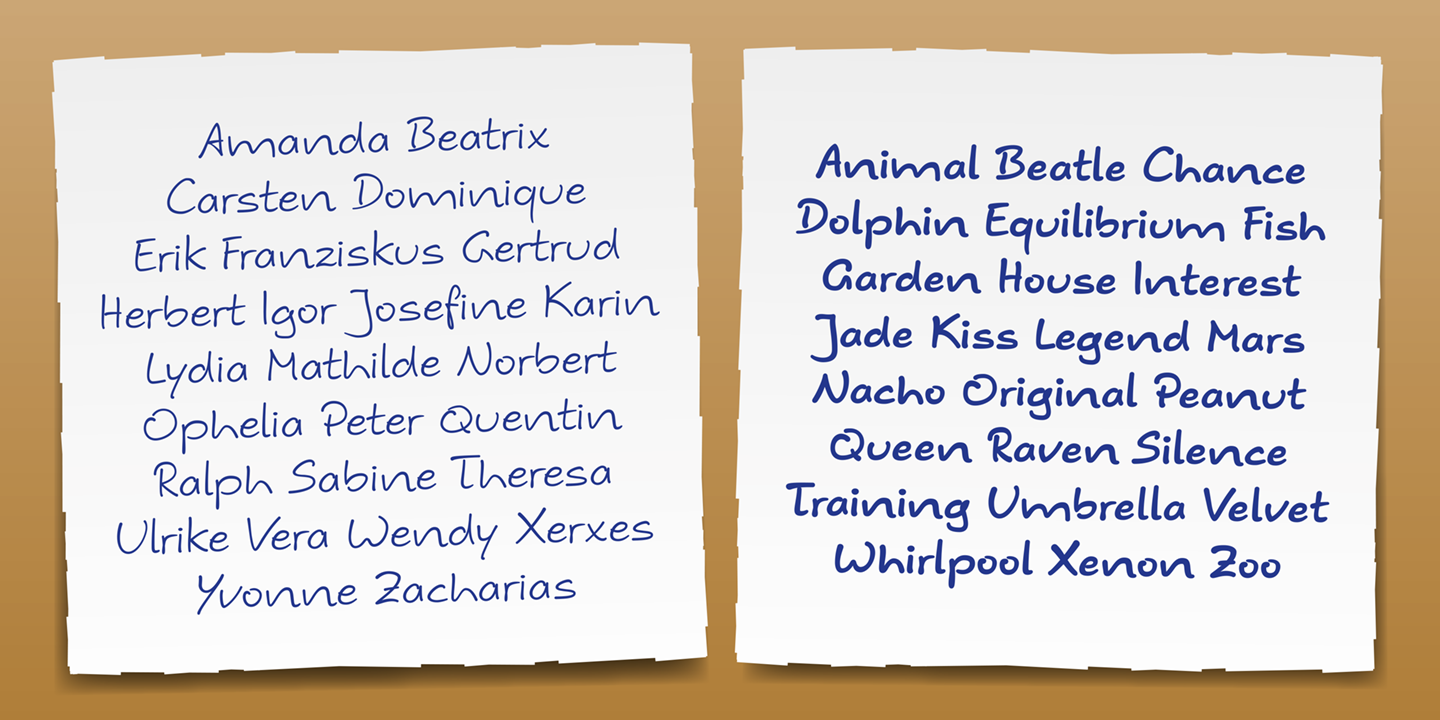 Amanda Beatrix
Carsten Dominique
Erik Franziskus Gertrud
Herbert Igor Josefine Karin
Lydia Mathilde Norbert
Ophelia Peter Quentin
Ralph Sabine Theresa
Ulrike Vera Wendy Xerxes
Yvonne Zacharias
Animal Beatle Chance
Dolphin Equilibrium Fish
Garden House Interest
Jade Kiss Legend Mars
Nacho Original Peanut
Queen Raven Silence
Training Umbrella Velvet
Whirlpool Xenon Zoo